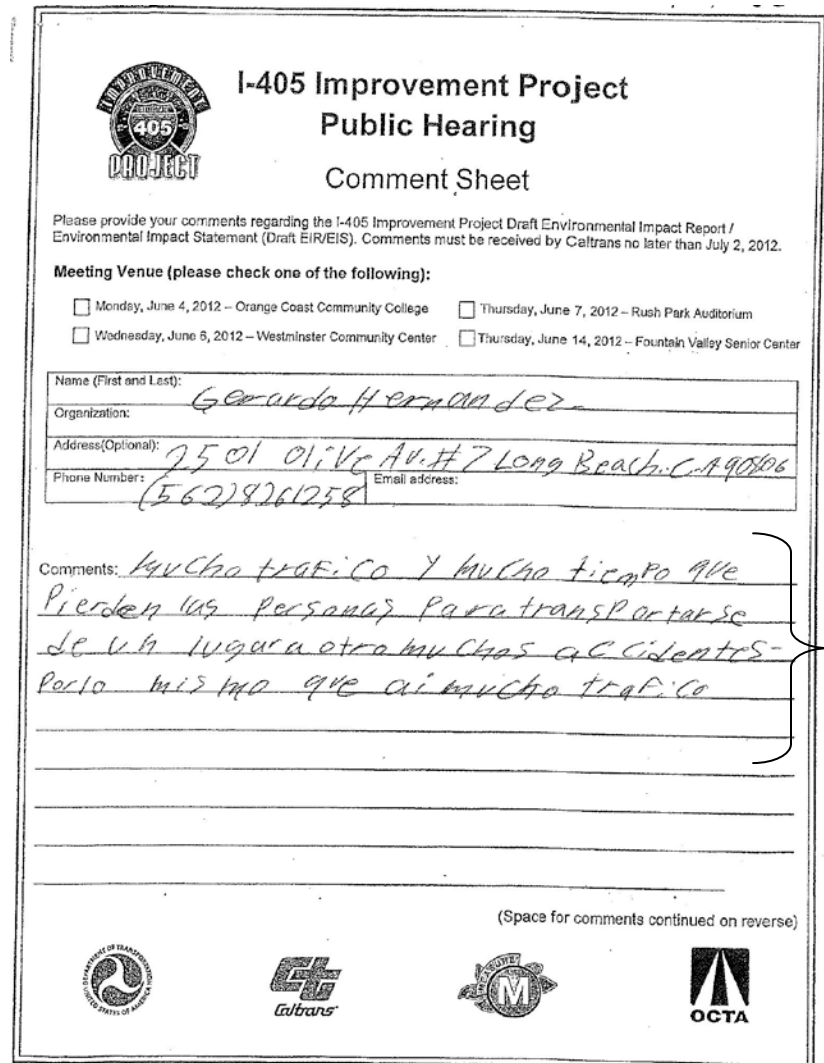 IMPROVEMENT
405
PROJECT
I-405 Improvement Project
Public Hearing
Comment Sheet
Please provide your comments regarding the I-405 Improvement Project Draft Environmental Impact Report /
Environmental Impact Statement (Draft EIR/EIS). Comments must be received by Caltrans no later than July 2, 2012.
Meeting Venue (please check one of the following):
Monday, June 4, 2012 – Orange Coast Community College
Thursday, June 7, 2012 – Rush Park Auditorium
Wednesday, June 6, 2012 – Westminster Community Center
Thursday, June 14, 2012 – Fountain Valley Senior Center
Name (First and Last): Gerardo Hernandez
Organization:
Address(Optional): 2501 Olive Av. #7 Long Beach. C.A 90806
Phone Number: (562) 8261258
Email address:
Comments: Mucho trafico y mucho tiempo que
Pierden las Personas Para transPortarse
de un lugar a otro muchos accidentes-
Por lo mismo que ai mucho trafico
(Space for comments continued on reverse)
DEPARTMENT OF TRANSPORTATION
UNITED STATES OF AMERICA
Caltrans
MEASURE
M
OCTA